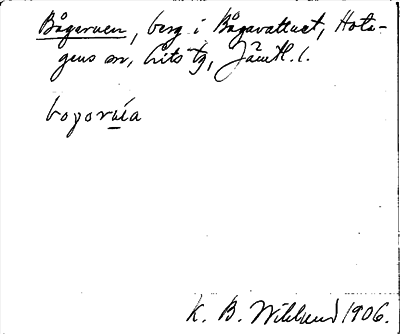 Bågeruen, berg i Bågavattnet, Hota-
gens sn, Lits tg, Jämtl. l.
bogoruéa
K. B. Wiklund 1906.